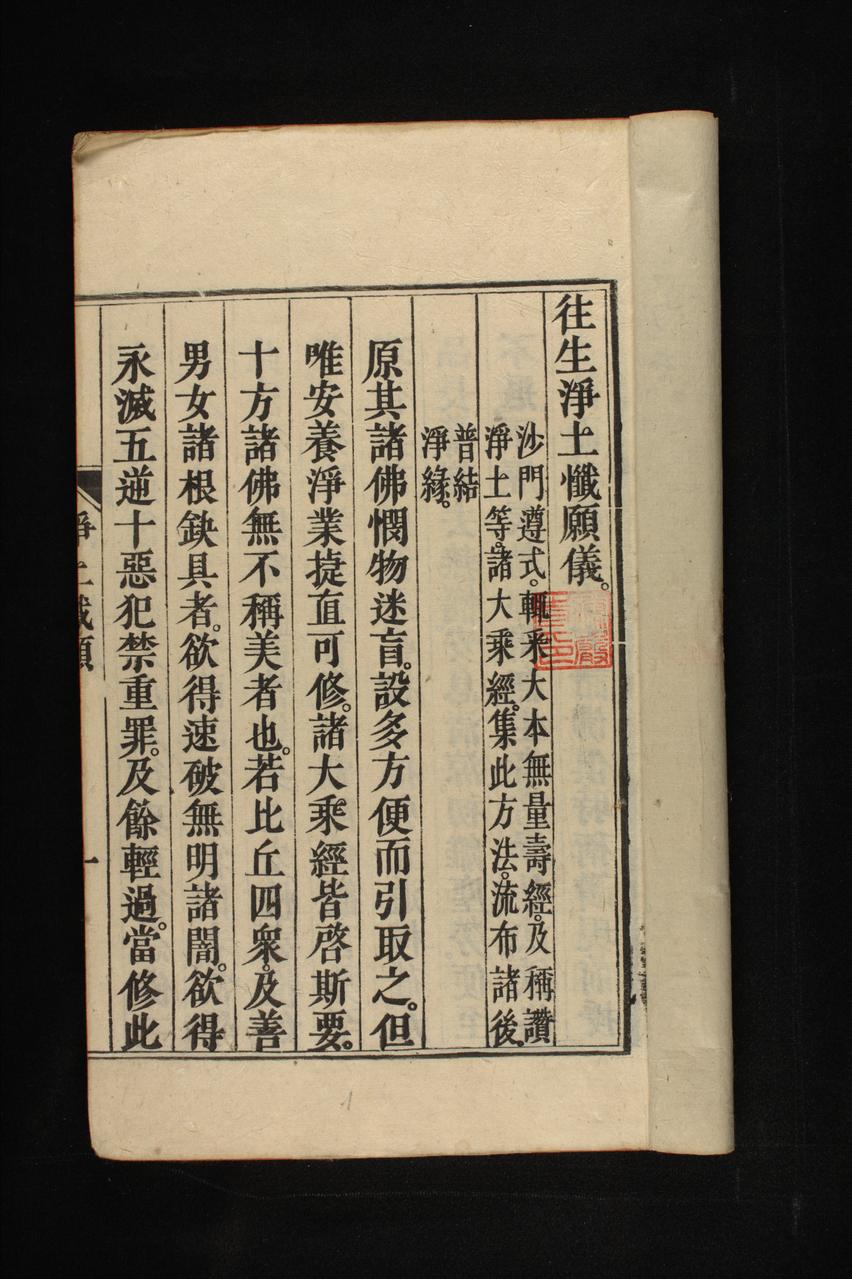 往生淨土懺願儀。
沙門遵式。輒采大本無量壽經。及稱讚
淨土等。諸大乘經。集此方法。流布諸後。
普結
淨緣。
原其諸佛憫物迷盲。設多方便而引取之。但
唯安養淨業捷直可修。諸大乘經皆啓斯要。
十方諸佛無不稱美者也。若比丘四衆。及善
男女諸根缺具者。欲得速破無明諸闇。欲得
永滅五逆十惡犯禁重罪。及餘輕過。當修此
淨土懺願
一
1